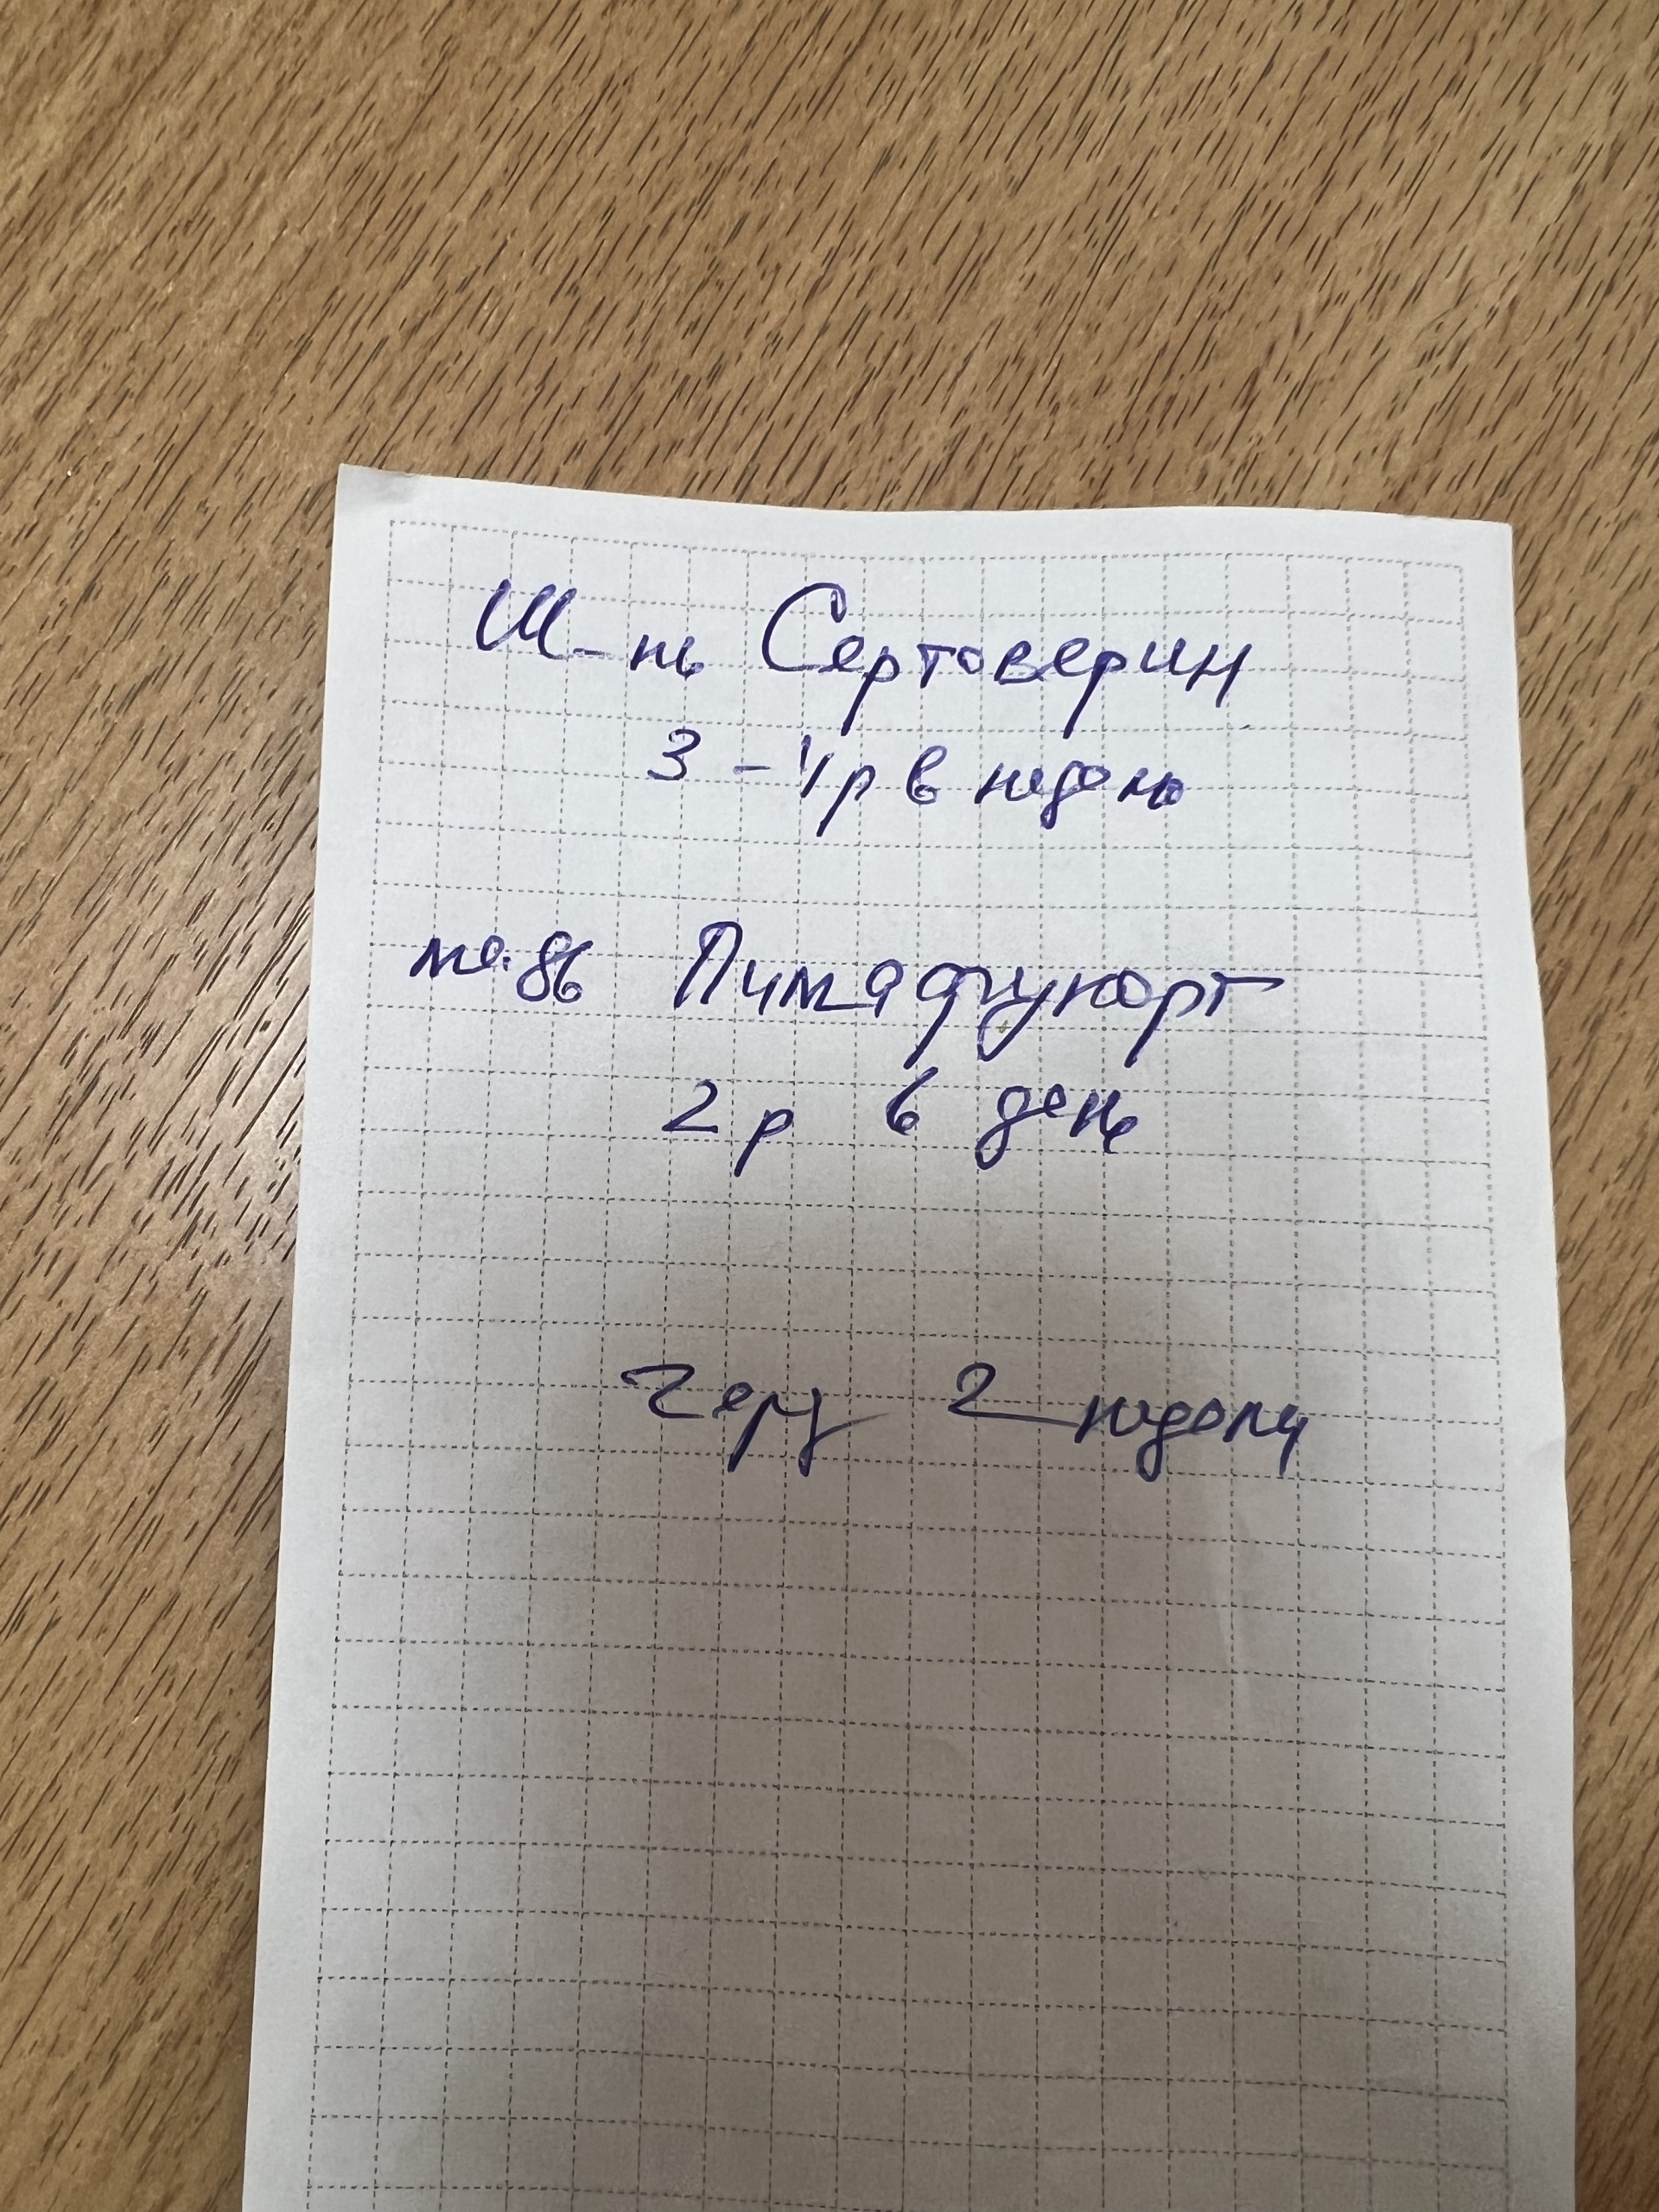 Ш-нь Сертоверин
3 - 4 р в неделю
мазь Пимафукорт
2 р в день
Через 2 недели